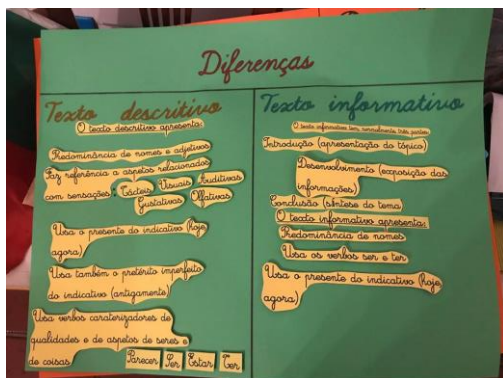 Diferenças
Texto descritivo
O texto descritivo apresenta:
Predominância de nomes e adjetivos
Faz referência a aspetos relacionados
com sensações: Tácteis Visuais Auditivas
Gustativas Olfativas
Usa o presente do indicativo (hoje,
agora)
Usa também o pretérito imperfeito
do indicativo (antigamente)
Usa verbos caraterizadores de
qualidades e de aspetos de seres e
de coisas. Parecer Ser Estar Ter
Texto informativo
O texto informativo tem normalmente três partes:
Introdução (apresentação do tópico)
Desenvolvimento (exposição das
informações)
Conclusão (síntese do tema)
O texto informativo apresenta:
Predominância de nomes
Usa os verbos ser e ter
Usa o presente do indicativo (hoje,
agora)